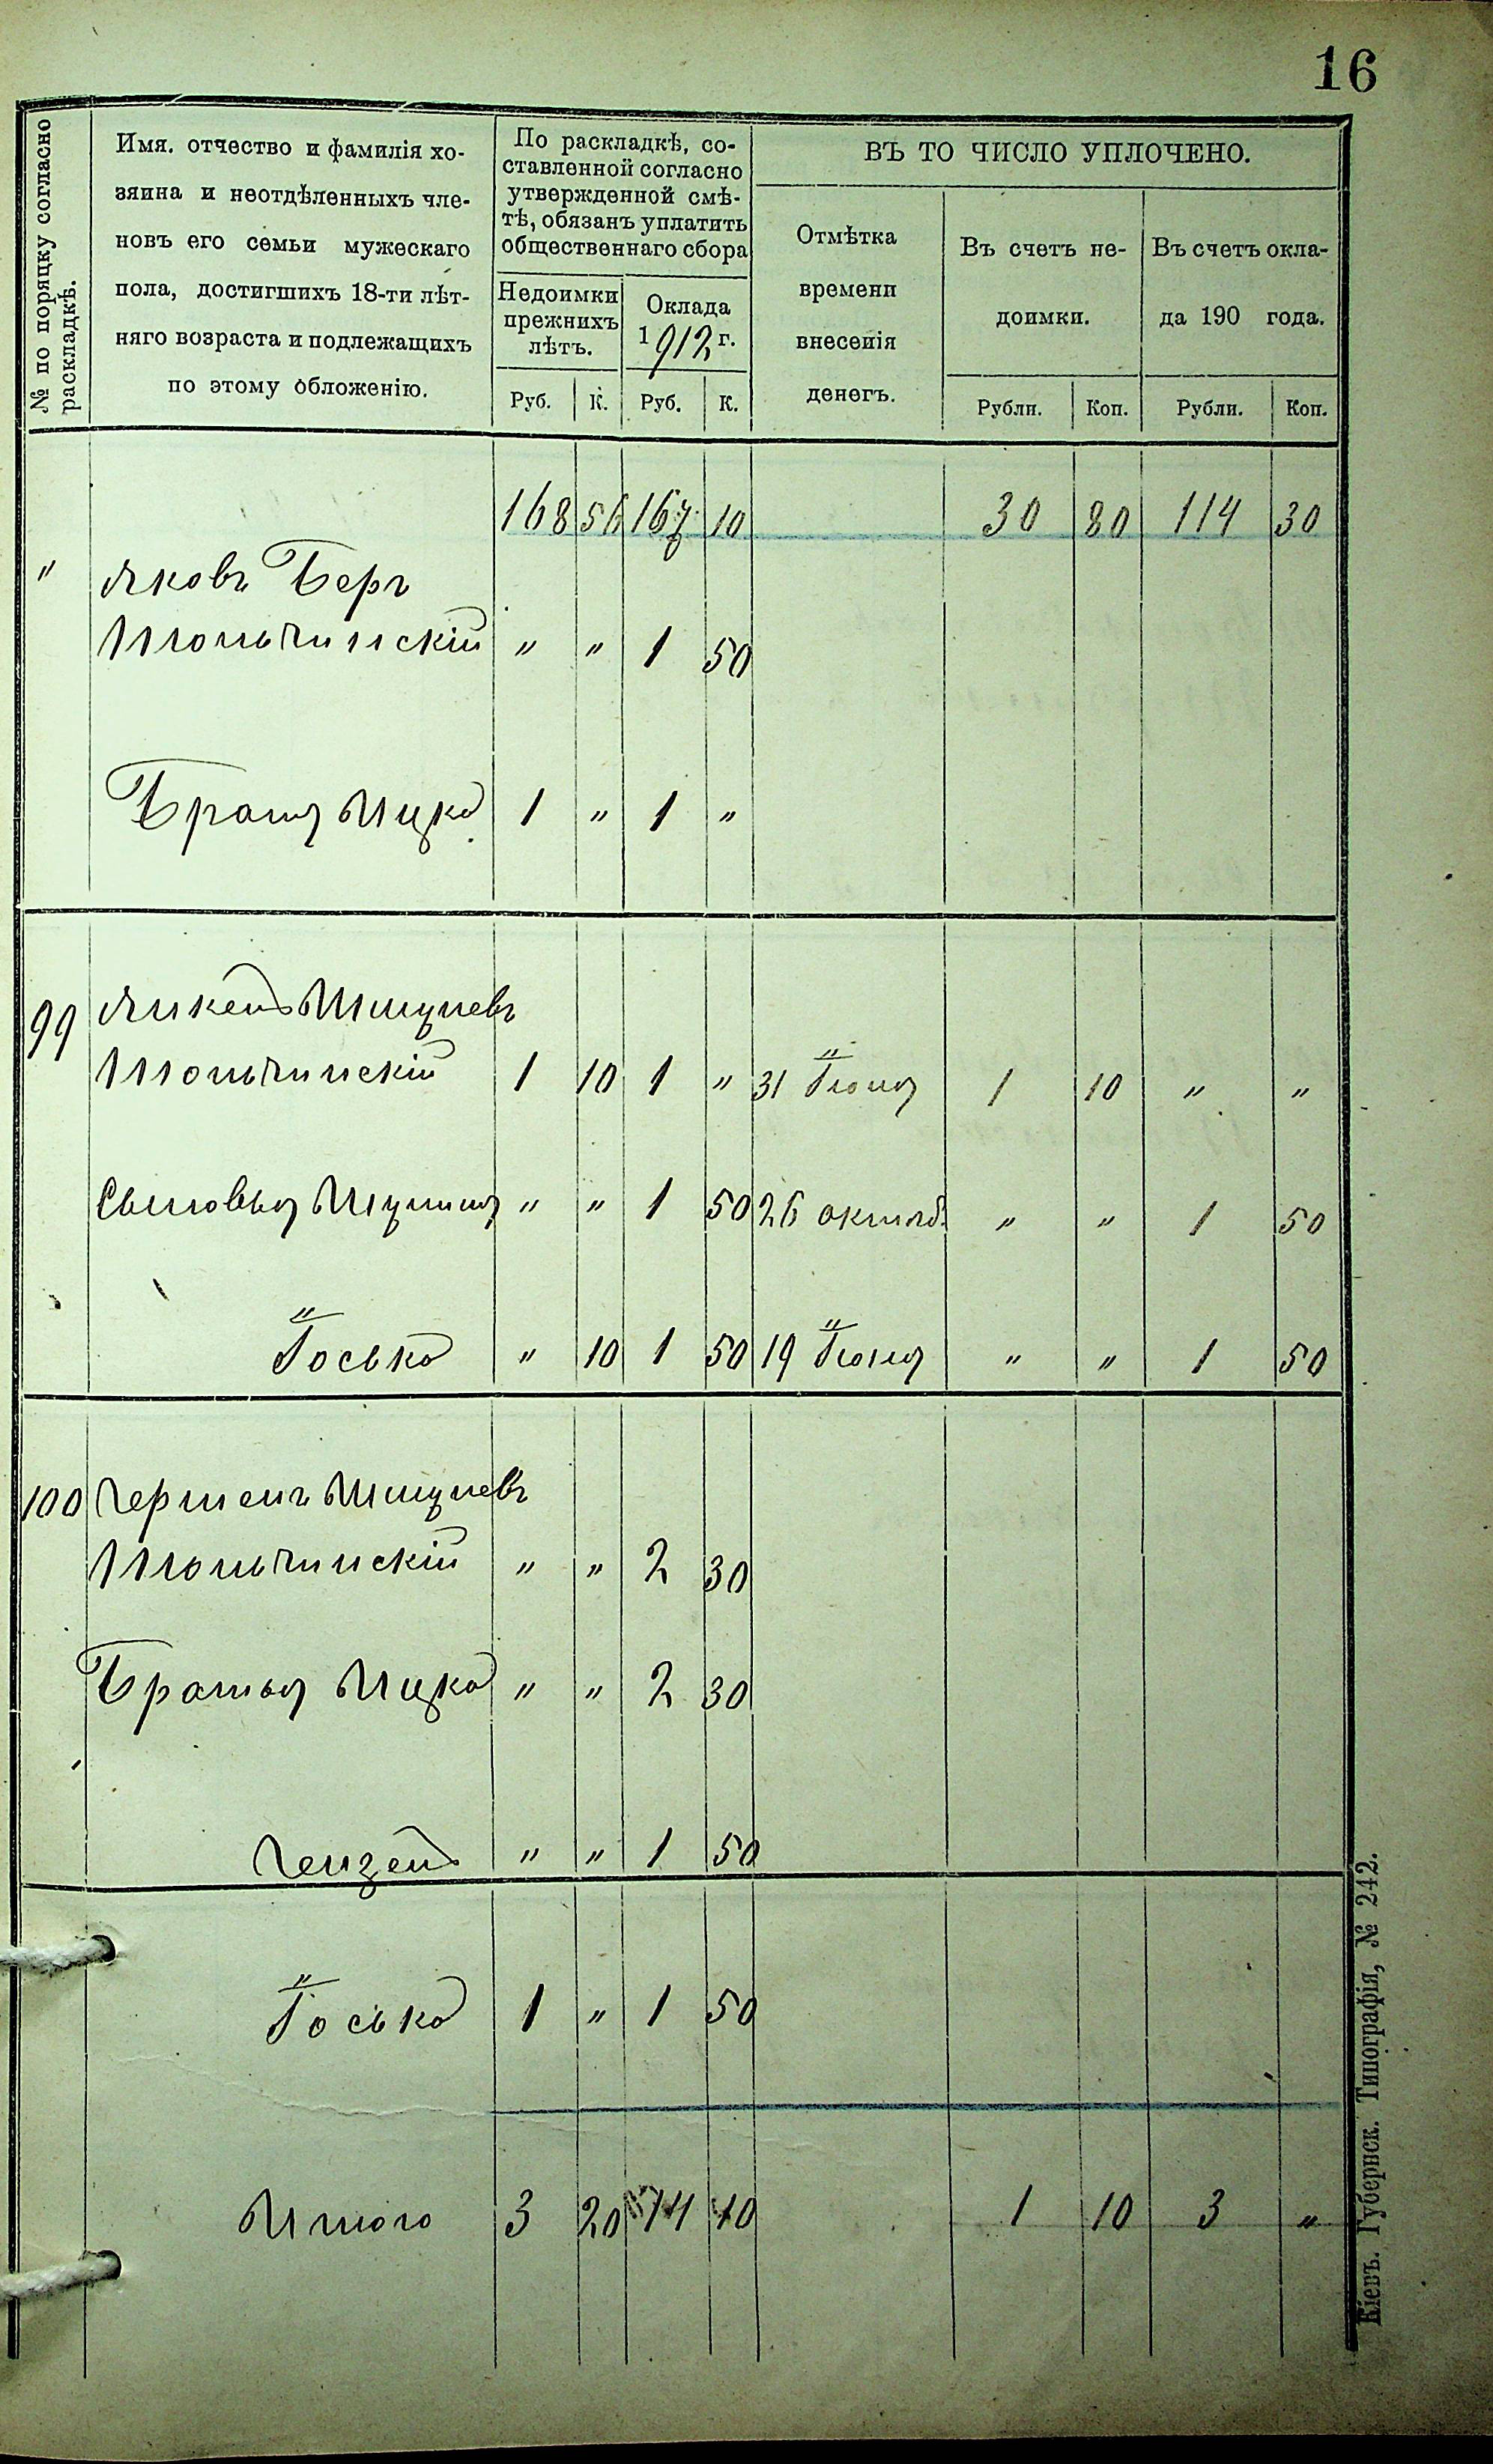 16
№ по порядку согласно
раскладкѣ.
Имя. отчество и фамилія хо-
зяина и неотдѣленныхъ чле-
новъ его семьи мужескаго
пола, достигшихъ 18-ти лѣт-
няго возраста и подлежащихъ
по этому обложенію.
По раскладкѣ, со-
ставленной согласно
утвержденной смѣ-
тѣ, обязанъ уплатить
общественнаго сбора
Недоимки
прежнихъ
лѣтъ.
Оклада
1912 г.
Руб. К. Руб. К.
ВЪ ТО ЧИСЛО УПЛОЧЕНО.
Отмѣтка
времени
внесенія
денегъ.
Въ счетъ не-
доимки.
Въ счетъ окла-
да 190 года.
Рубли. Коп. Рубли. Коп.
168 56 167 10 30 80 114 30
" Яковъ Беръ
" " 1 50
Братъ Ицко 1 " 1 "
99 Янкель
1 10 1 " 31 1 10 " "
Сыновья " " 1 50 26 октяб. " " 1 50
Іосько " 10 1 50 19 " " 1 50
100 Гершонъ
" " 2 30
Братья Ицко " " 2 30
" " 1 50
Іосько 1 " 1 50
Итого 3 20 14 10 1 10 3 "
Кіевъ. Губернск. Типографія, № 242.